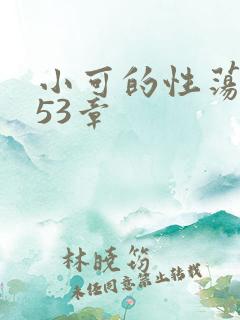 小可的性荡
53章
林晓筠
未经同意禁止转载